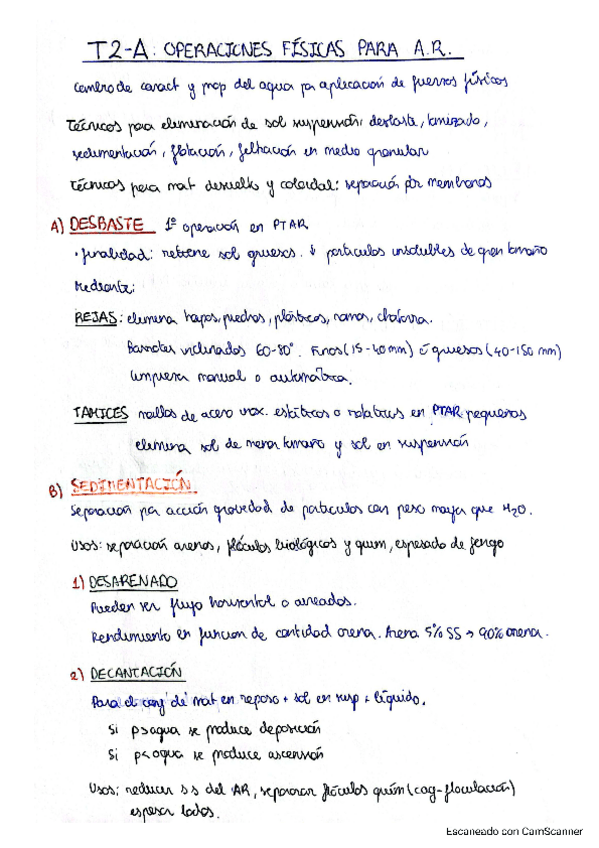 T2-A: OPERACIONES FÍSICAS PARA A.R.
cambio de caract y prop del agua por aplicación de fuerzas físicas
Técnicas para eliminación de sol suspensión: desbaste, tamizado,
sedimentación, flotación, filtración en medio granular
Técnicas para mat disuelta y coloidal: separación por membranas
A) DESBASTE 1ª operación en PTAR
· finalidad: retiene sol gruesos. ↓ partículas insolubles de gran tamaño
Mediante:
REJAS: elimina trapos, piedras, plásticos, ramas, chatarra.
Barrotes inclinados 60-80°. Finos (15-40mm) ó gruesos (40-150 mm)
Limpieza manual o automática.
TAMICES mallas de acero inox. estáticos o rotativos en PTAR pequeñas
elimina sol de menor tamaño y sol en suspensión
B) SEDIMENTACIÓN
Separación por acción gravedad de partículas con peso mayor que H2O.
Usos: separación arenas, flóculos biológicos y quím, espesado de fango
1) DESARENADO
Pueden ser flujo horizontal o aireados.
Rendimiento en función de cantidad arena. Arena 5% SS → 90% arena.
2) DECANTACIÓN
Para el de mat en reposo + sol en susp + líquido.
Si ρ>agua se produce deposición
Si ρ<agua se produce ascensión
Usos: reducir ss del AR, separar flóculos quím (coag-floculación)
espesar lodos.
Escaneado con CamScanner